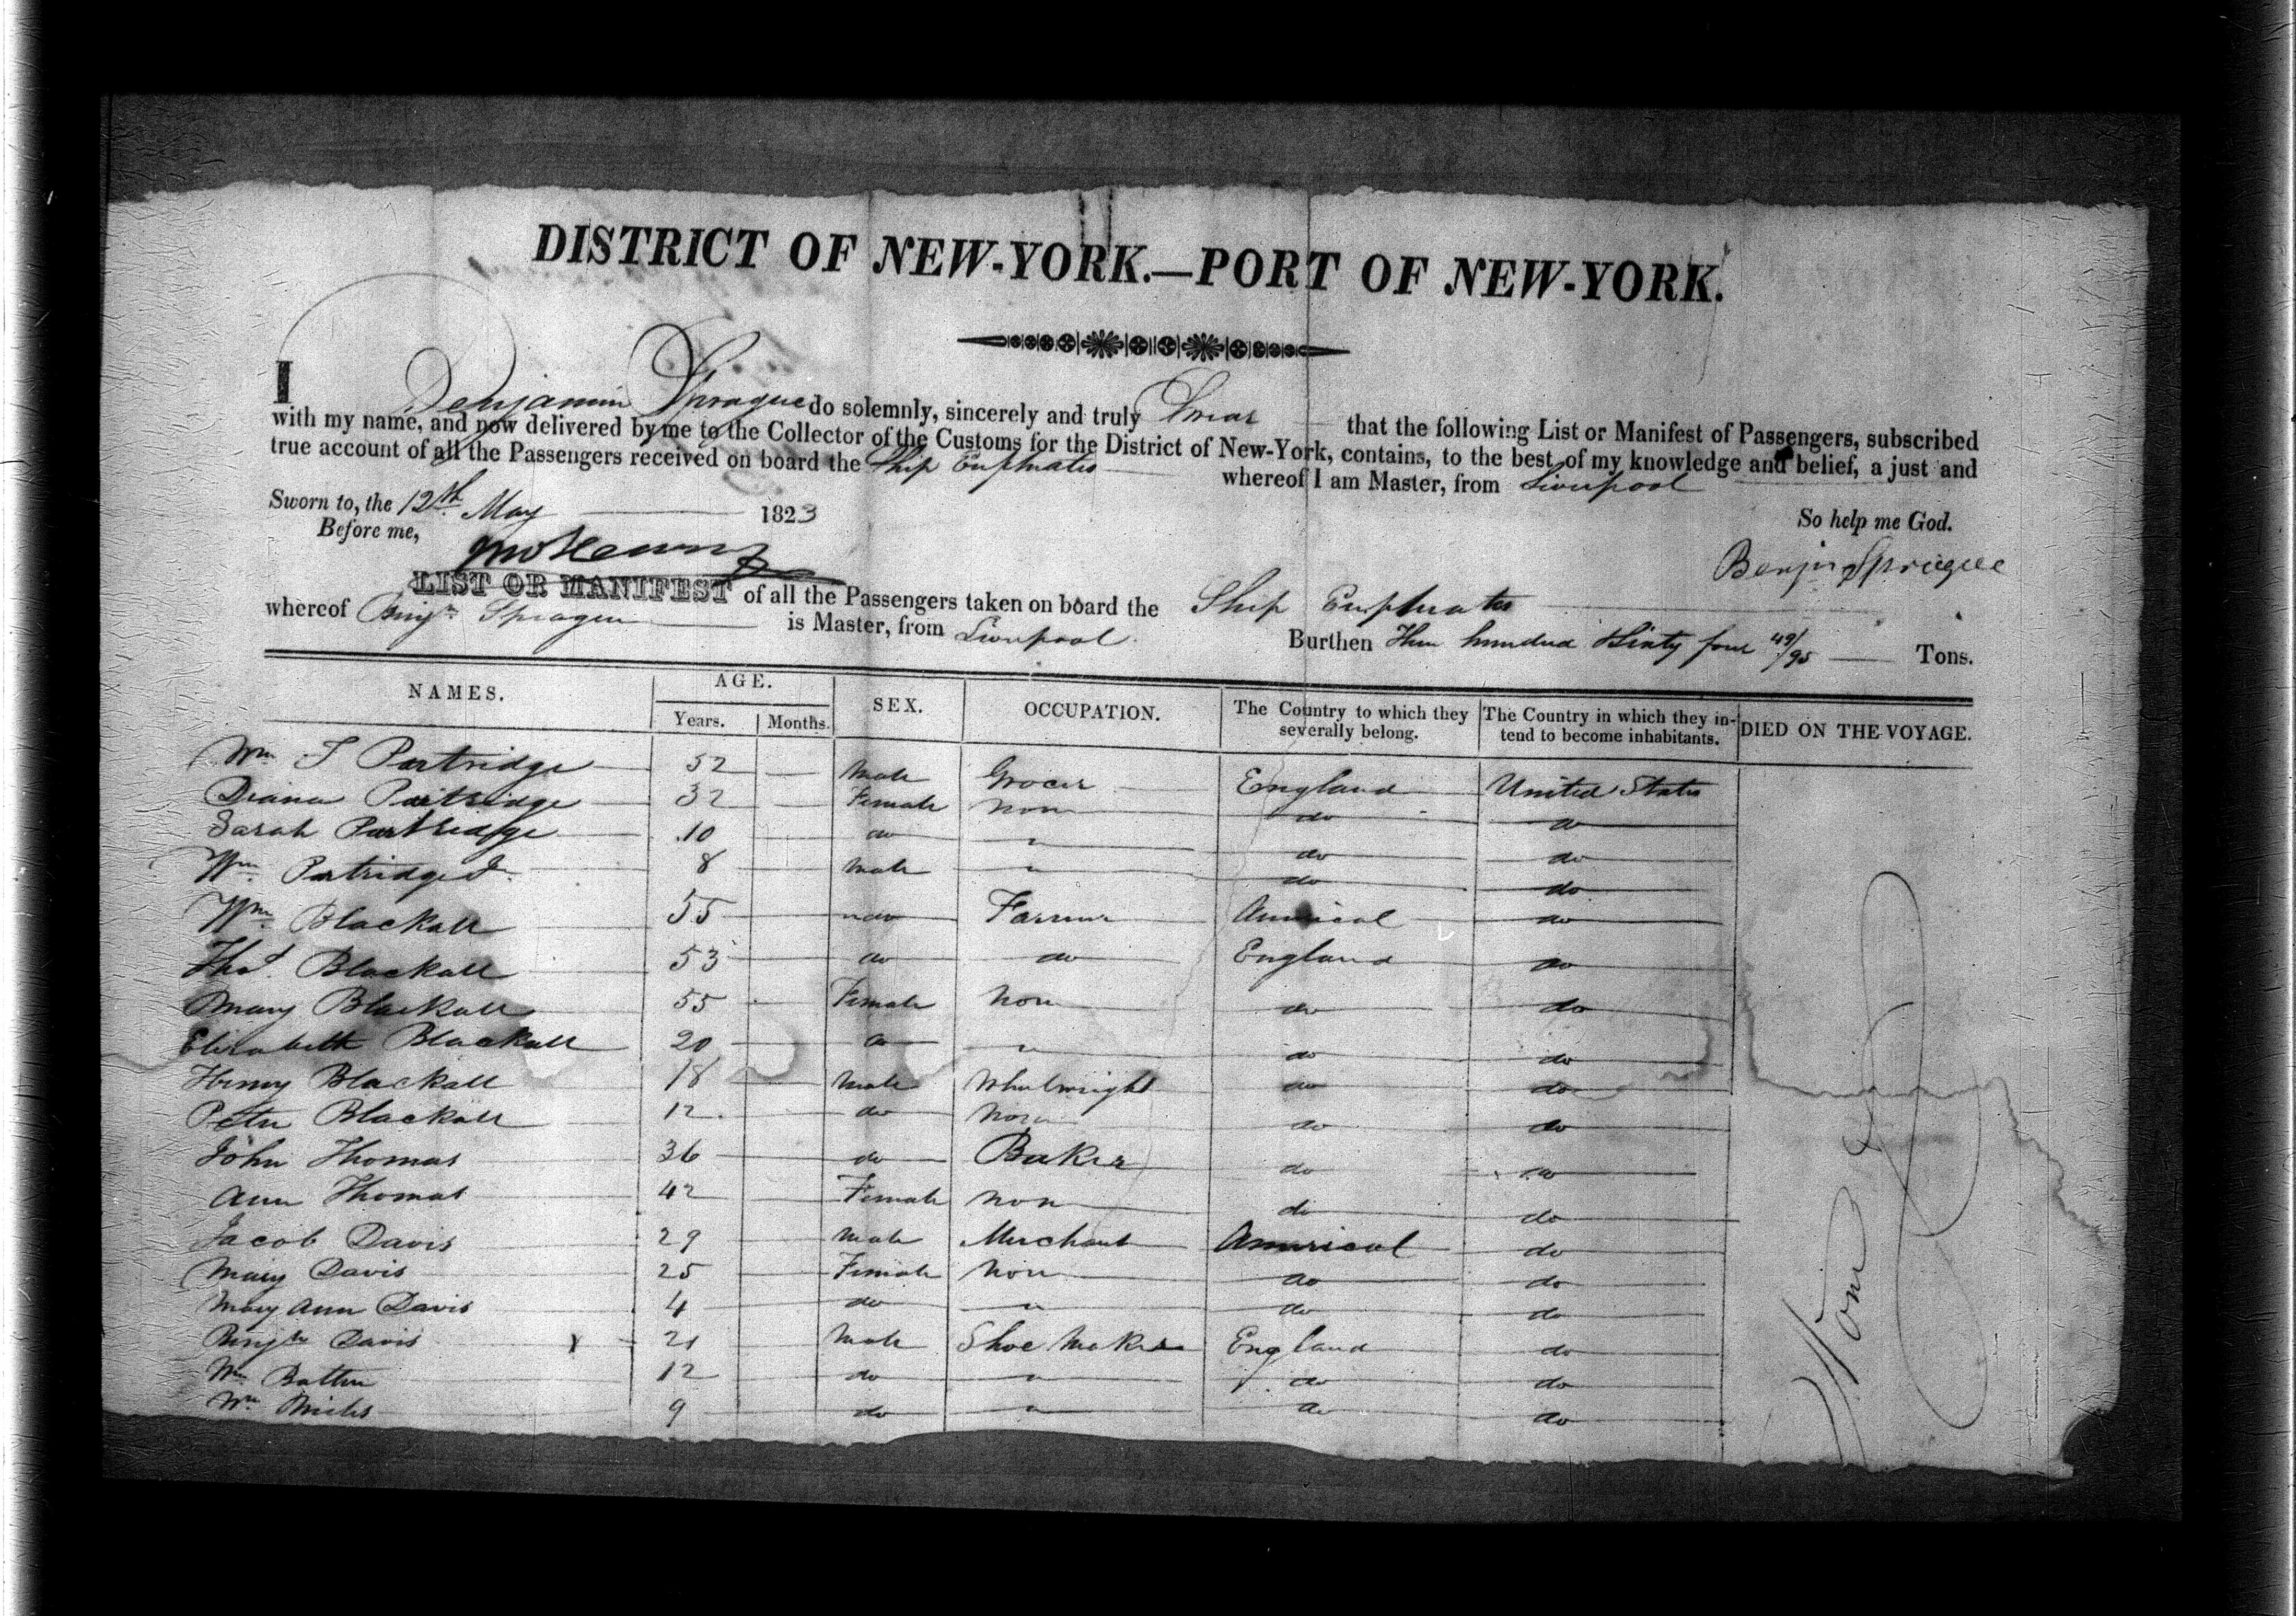 DISTRICT OF NEW-YORK.—PORT OF NEW-YORK.
I Benjamin Sprague do solemnly, sincerely and truly Swear that the following List or Manifest of Passengers, subscribed
with my name, and now delivered by me to the Collector of the Customs for the District of New-York, contains, to the best of my knowledge and belief, a just and
true account of all the Passengers received on board the Ship Euphrates whereof I am Master, from Liverpool
Sworn to, the 12th May 1823 So help me God.
Before me,
Benjn Sprague
LIST OR MANIFEST of all the Passengers taken on board the Ship Euphrates
whereof Benjn Sprague is Master, from Liverpool Burthen Three hundred Sixty four 49/95 Tons.
NAMES. AGE. SEX. OCCUPATION. The Country to which they severally belong. The Country in which they intend to become inhabitants. DIED ON THE VOYAGE.
Years. Months.
Wm S Partridge 52 Male Grocer England United States
Diana Partridge 32 Female None do do
Sarah Partridge 10 do " do do
Wm Partridge Jr 8 Male " do do
Wm Blackall 55 do Farmer America do
Thos. Blackall 53 do do England do
Mary Blackall 55 Female None do do
Elizabeth Blackall 20 do " do do
Henry Blackall 18 Male Wheelwright do do
Peter Blackall 12 do None do do
John Thomas 36 do Baker do do
Ann Thomas 42 Female None do do
Jacob Davis 29 Male Merchant America do
Mary Davis 25 Female None do do
Mary Ann Davis 4 do " do do
Benjn Davis 21 Male Shoe Maker England do
Wm Batten 12 do " do do
Wm Miles 9 do " do do
None